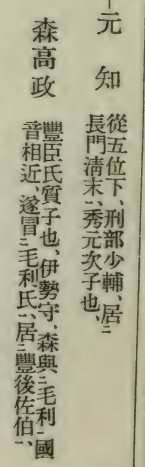 元知
從五位下、刑部少輔、居二
長門清末一、秀元次子也、
森高政
豐臣氏質子也、伊勢守、森與二毛利一國
音相近、遂冒二毛利氏一、居二豐後佐伯一、